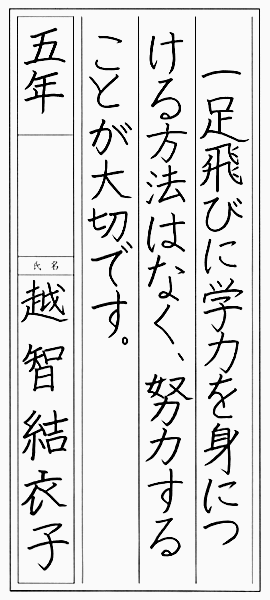 一足飛びに学力を身につ
ける方法はなく、努力する
ことが大切です。
五年
氏名
越智結衣子